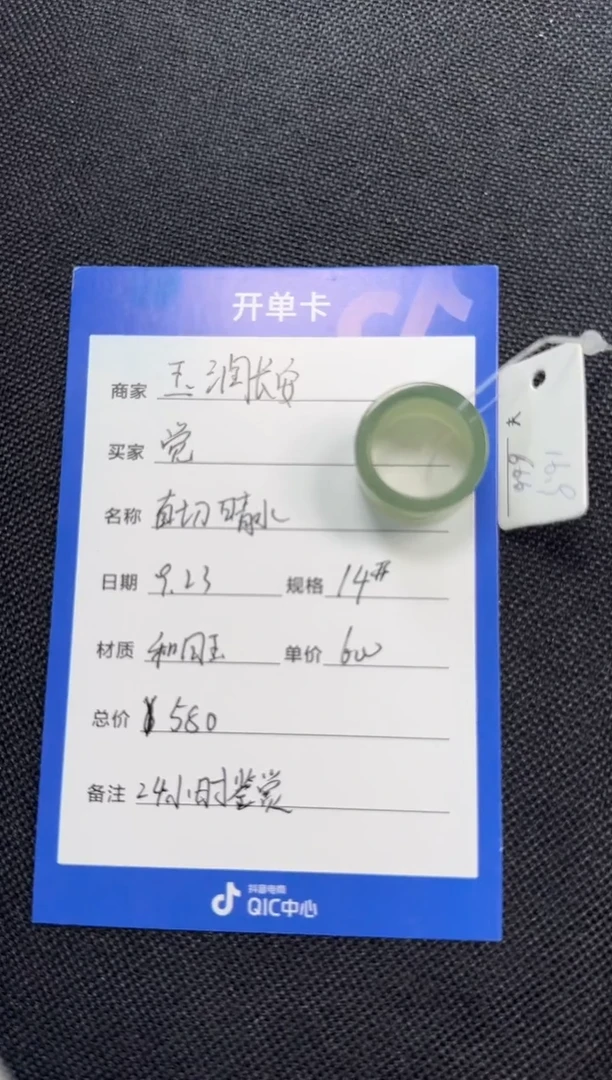 开单卡
商家 玉润长安
买家 觉
名称 直切晴水
日期 9.23 规格 14#
材质 和田玉 单价 6w
总价 ¥580
备注 24小时鉴赏
抖音电商
QIC中心